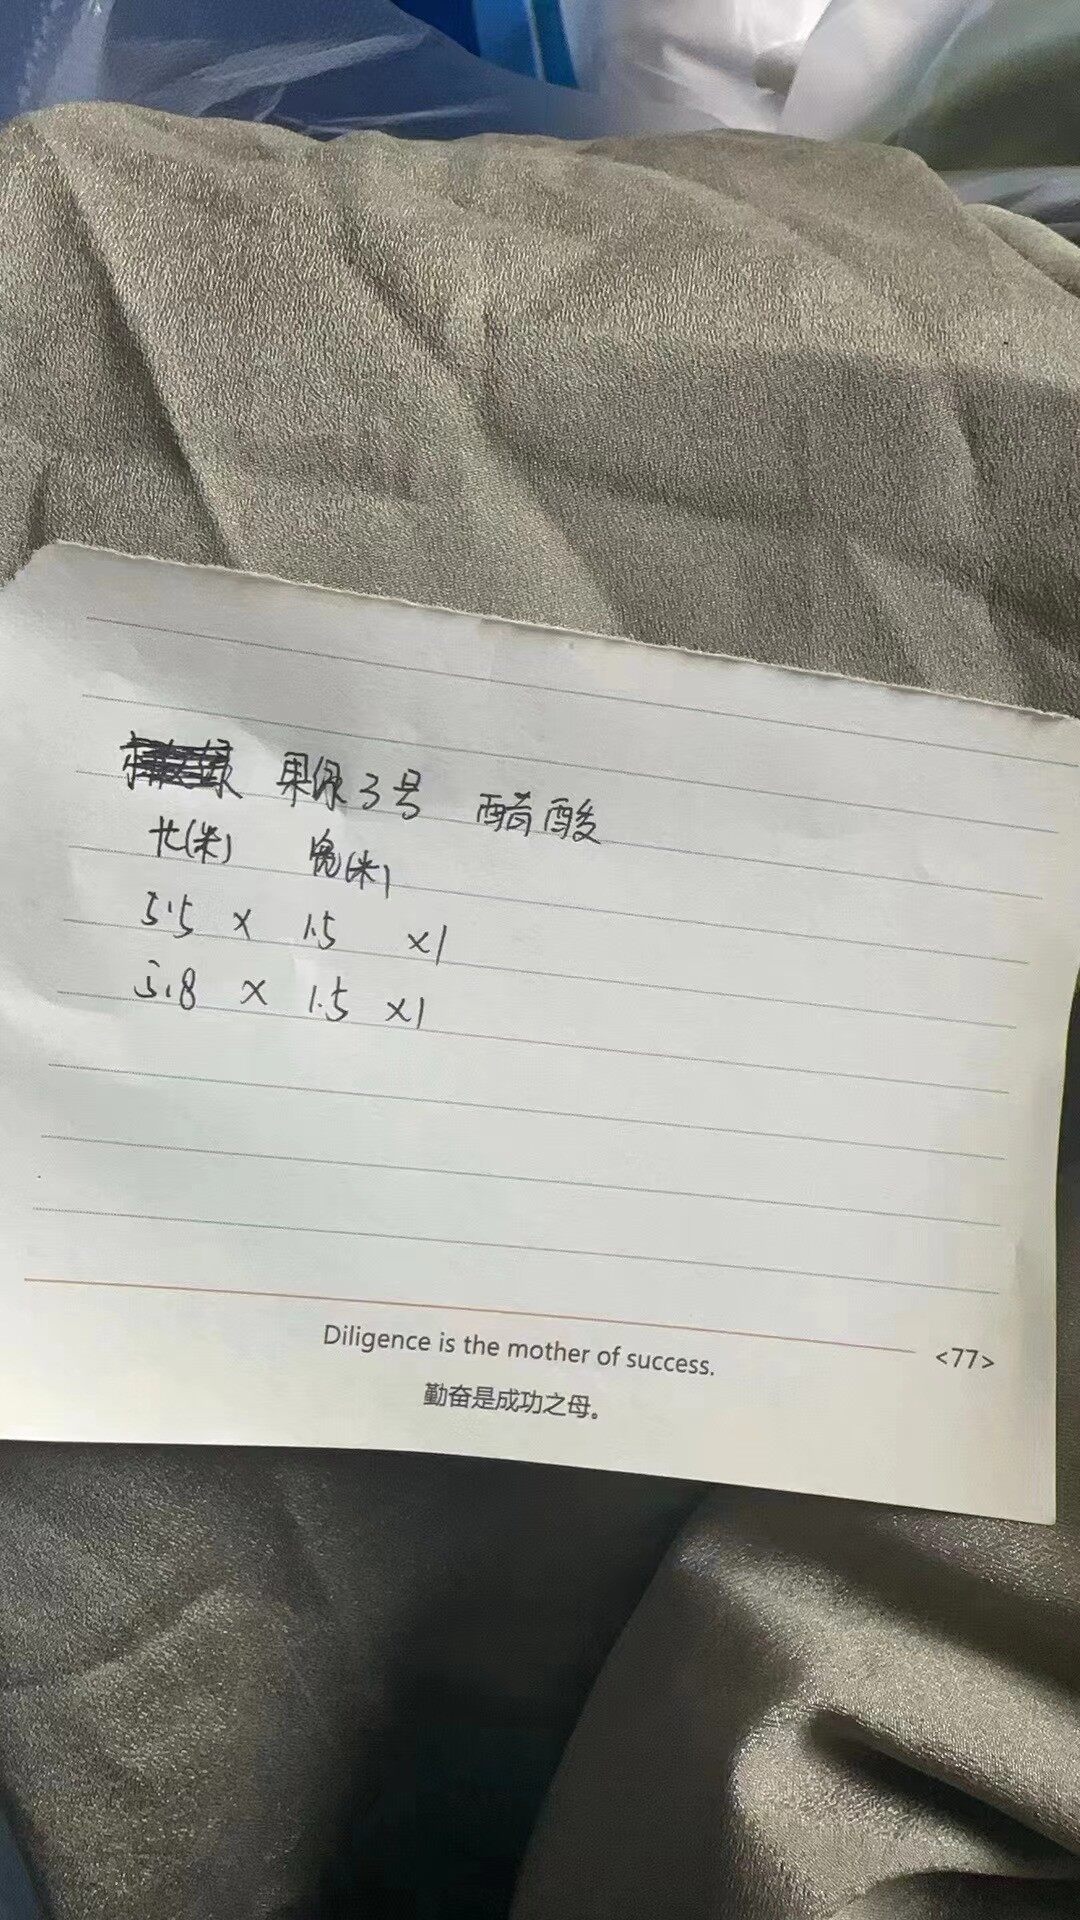 果绿3号 醋酸
长(米) 宽(米)
5.5 × 1.5 ×1
5.8 × 1.5 ×1
Diligence is the mother of success. <77>
勤奋是成功之母。